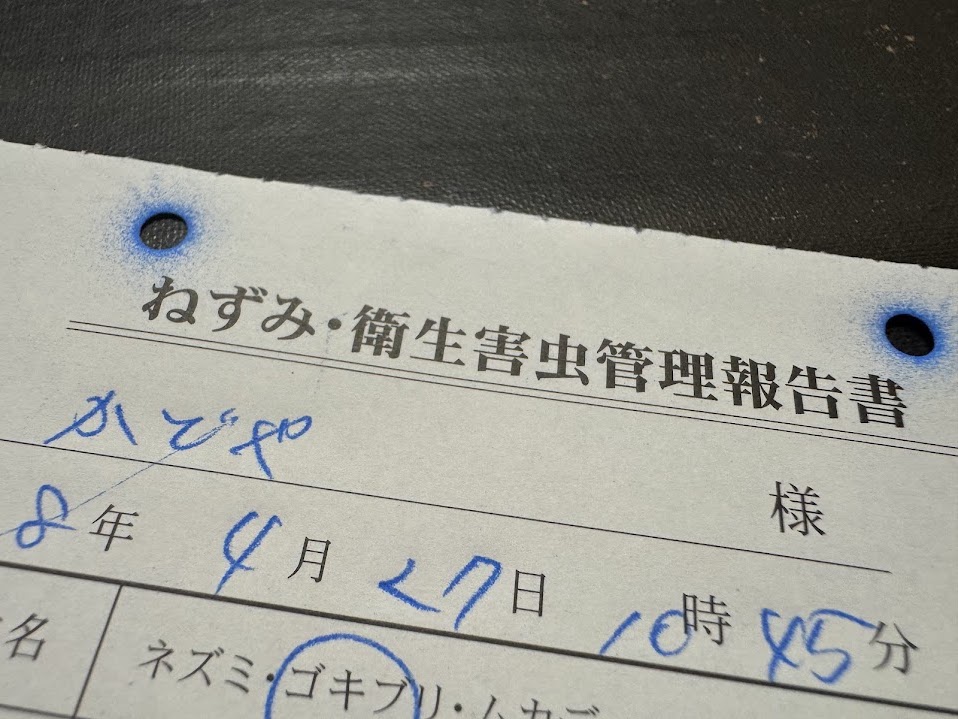 ねずみ・衛生害虫管理報告書
かどや 様
8年 4月 27日 10時 45分
名 ネズミ・ゴキブリ・ムカデ